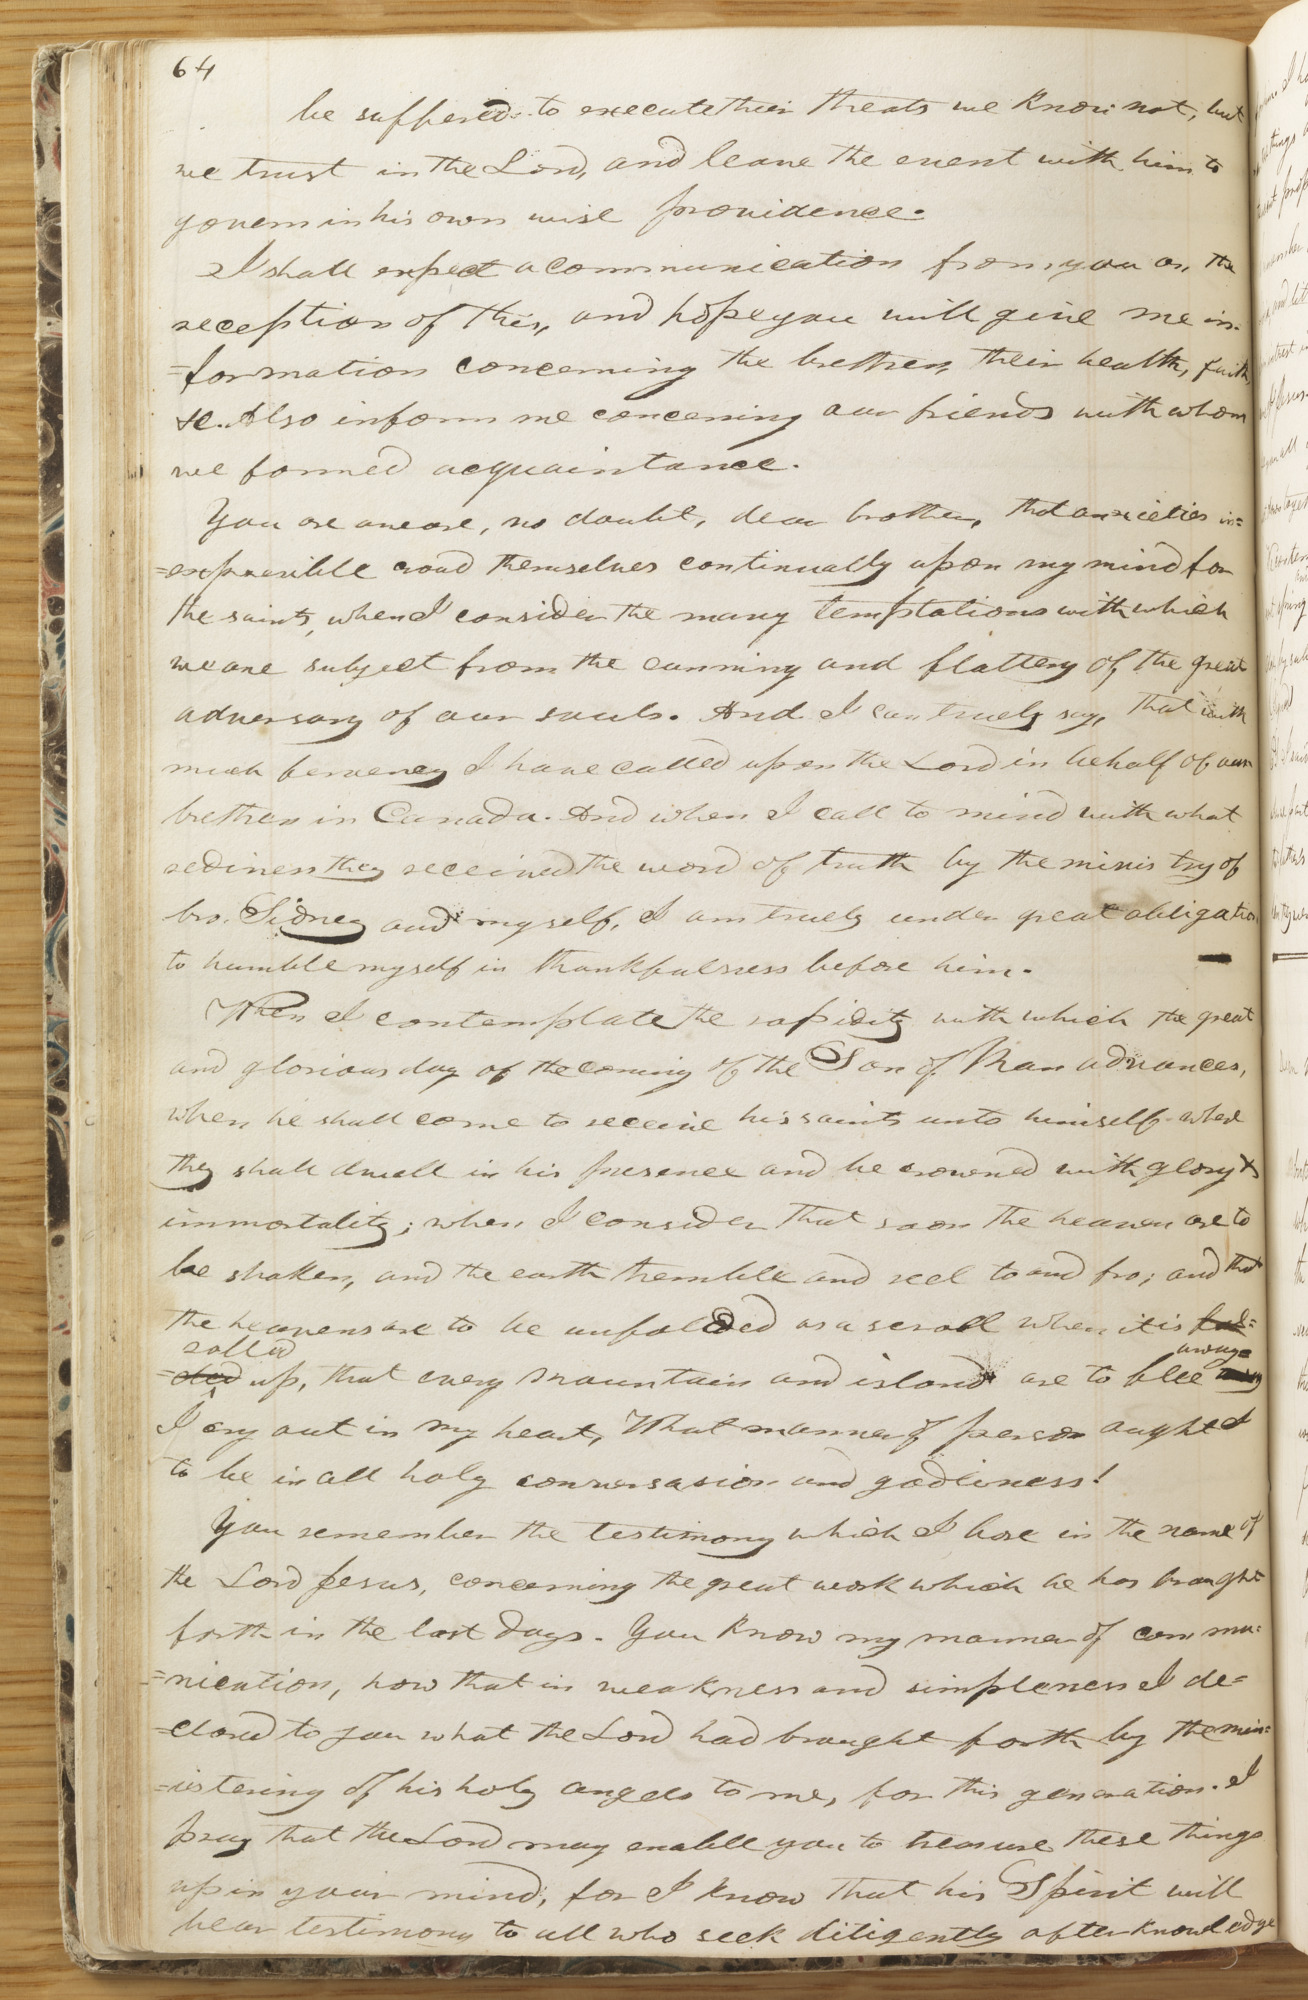 64
be suffered to execute their threats we know not, but
we trust in the Lord, and leave the event with him to
govern in his own wise providence.
I shall expect a communication from you on the
reception of this, and hope you will give me in-
=formation concerning the brethren, their health, faith,
&c. Also inform me concerning our friends with whom
we formed acquaintance.
You are aware, no doubt, dear brother, that anxieties in=
=expressible croud themselves continually upon my mind for
the saints, when I consider the many temptations with which
we are subject from the cunning and flattery of the great
adversary of our souls. And I can truely say, that with
much fervency I have called upon the Lord in behalf of our
brethren in Canada. And when I call to mind with what
rediness they received the word of truth by the ministry of
bro. Sidney and myself, I am truely under great obligation
to humble myself in thankfulness before him.
When I contemplate the rapidity with which the great
and glorious day of the coming of the Son of Man advances,
when he shall come to receive his saints unto himself where
they shall dwell in his presence and be crowned with glory &
immortality; when I consider that soon the heaven are to
be shaken, and the earth tremble and reel to and fro; and that
the heavens are to be unfolded as a scroll when it is fol=
rolled away=
=ded up, that every mountain and island are to flee away
I cry out in my heart, What manner of person ought I
to be in all holy conversasion and godliness!
You remember the testimony which I bore in the name of
the Lord Jesus, concerning the great work which he has brought
forth in the last days. You know my manner of commu=
=nication, how that in weakness and simpleness I de=
=clared to you what the Lord had brought forth by the min=
=istering of his holy angels to me, for this generation. I
pray that the Lord may enable you to treasure these things
up in your mind, for I know that his Spirit will
bear testimony to all who seek diligently after knowledge